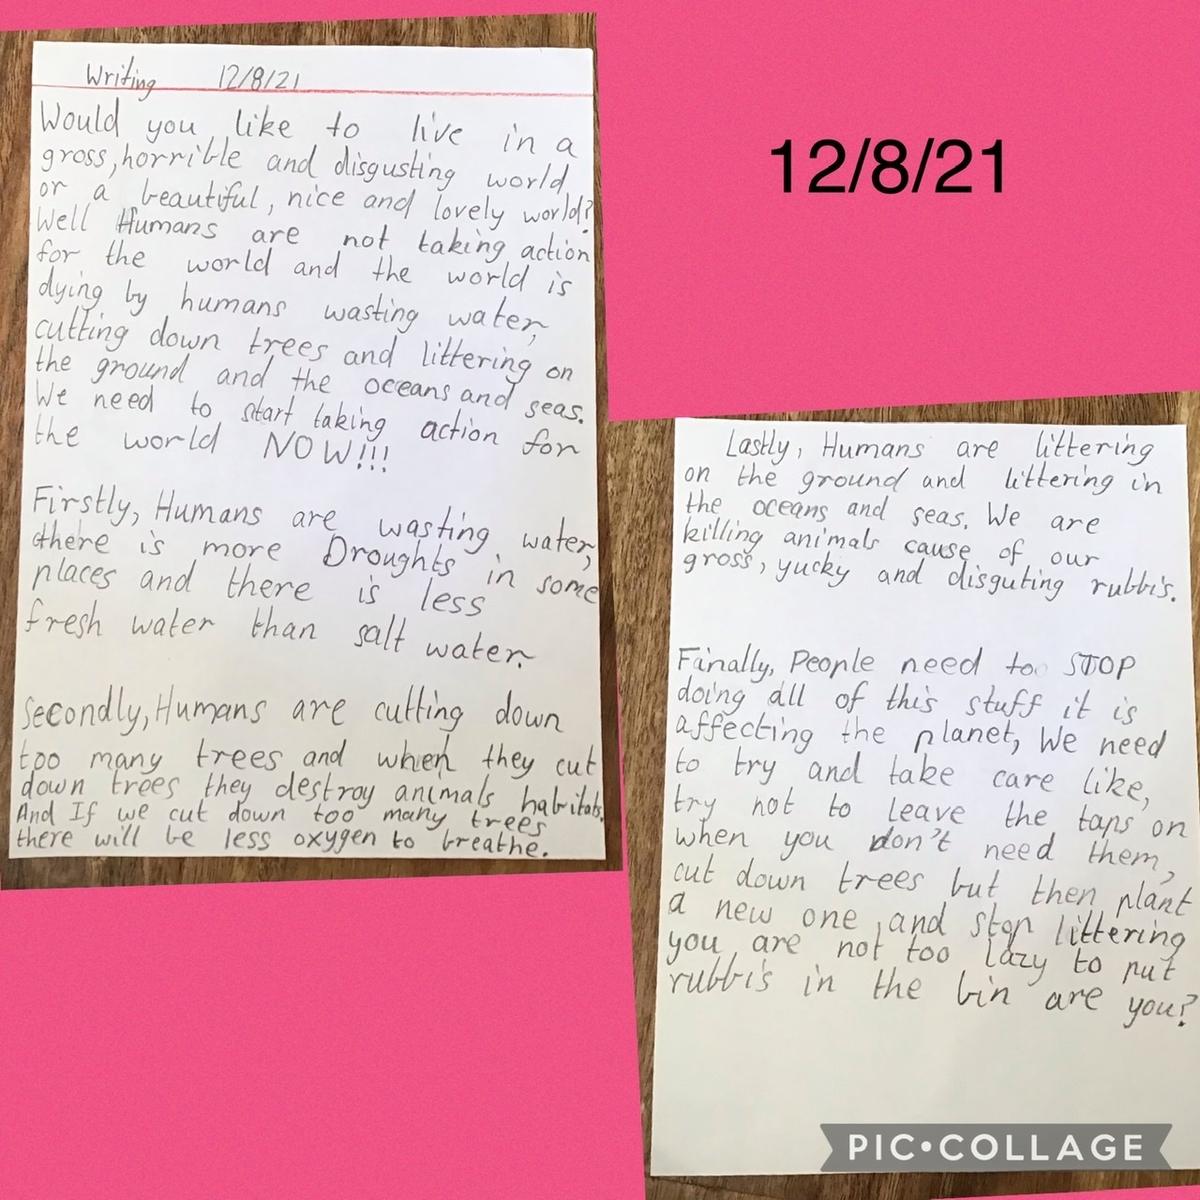 Writing 12/8/21
Would you like to live in a
gross, horrible and disgusting world
or a beautiful, nice and lovely world?
Well Humans are not taking action
for the world and the world is
dying by humans wasting water,
cutting down trees and littering on
the ground and the oceans and seas.
We need to start taking action for
the world NOW!!!
Firstly, Humans are wasting water,
there is more Droughts in some
places and there is less
fresh water than salt water.
Secondly, Humans are cutting down
too many trees and when they cut
down trees they destroy animals habitats.
And If we cut down too many trees
there will be less oxygen to breathe.
12/8/21
Lastly, Humans are littering
on the ground and littering in
the oceans and seas. We are
killing animals cause of our
gross, yucky and disguting rubbis.
Finally, People need to STOP
doing all of this stuff it is
affecting the planet, We need
to try and take care like,
try not to leave the taps on
when you don't need them,
cut down trees but then plant
a new one, and stop littering
you are not too lazy to put
rubbis in the bin are you?
PIC•COLLAGE